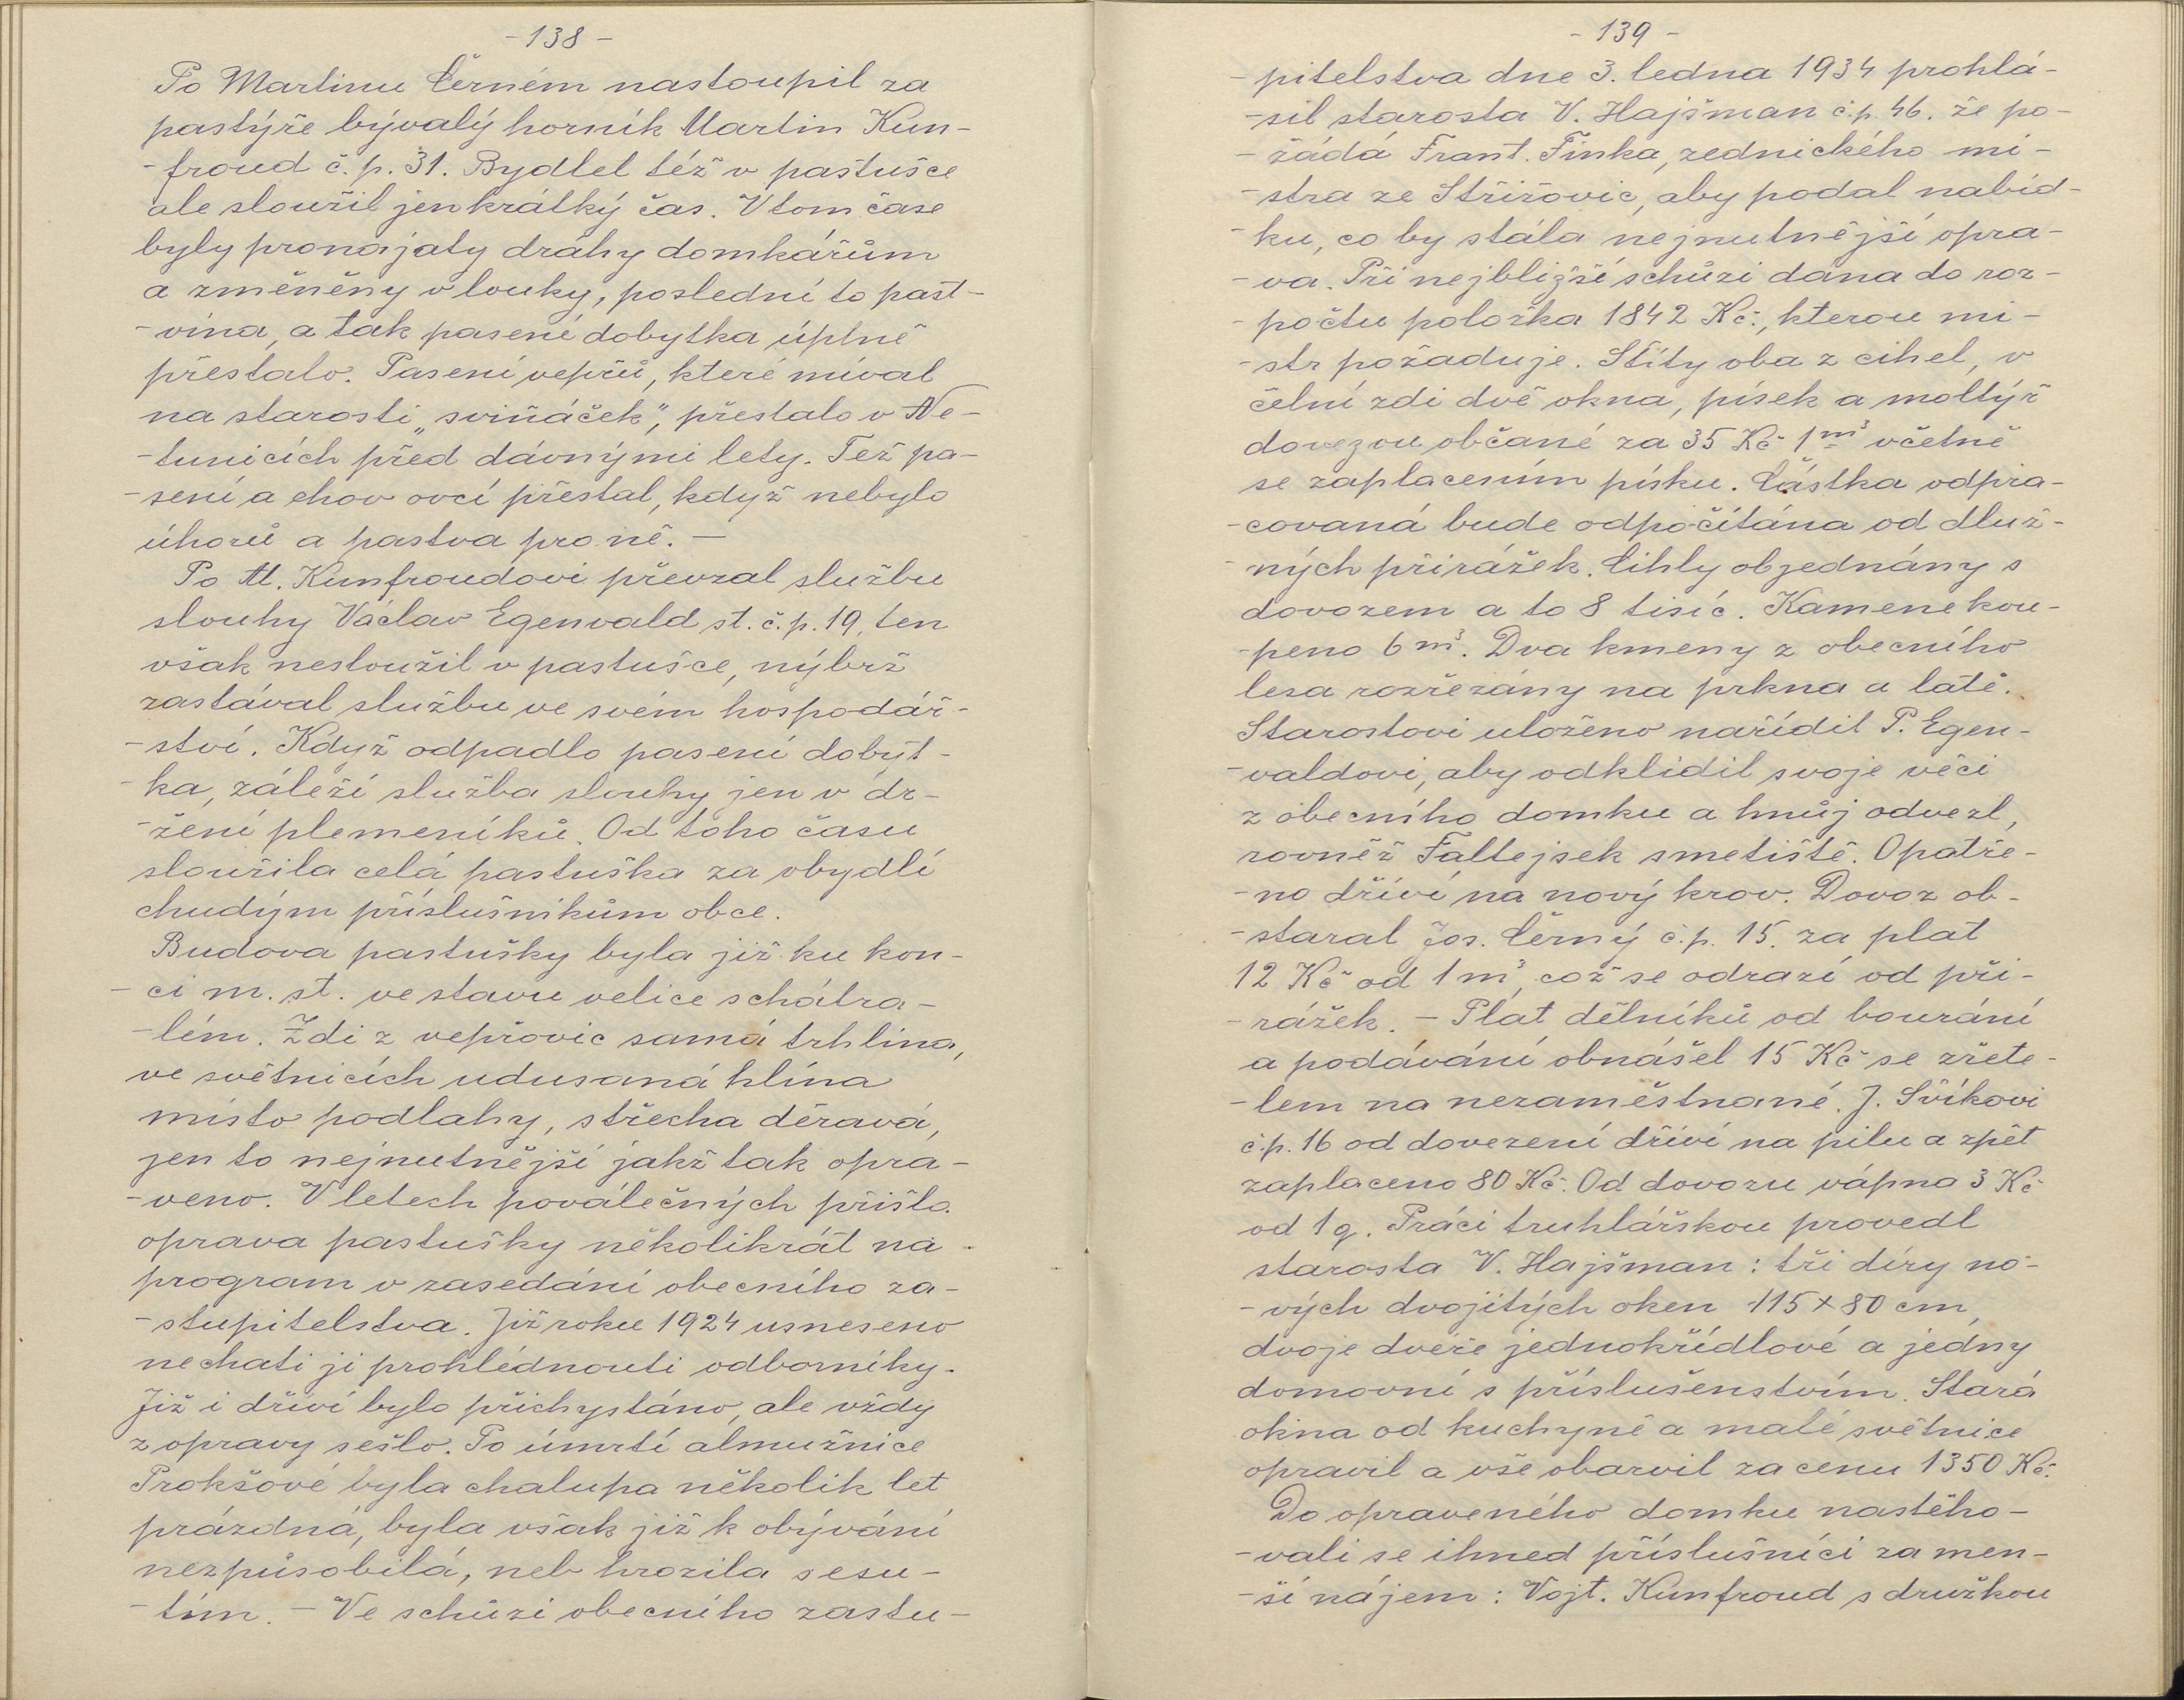 - 138 -
Po Martinu Černém nastoupil za
pastýře bývalý horník Martin Kun-
-froud č. p. 31. Bydlel též v pastušce
ale sloužil jen krátký čas. V tom čase
byly pronajaty dráhy domkářům
a změněny v louky, poslední to past-
-vina, a tak pasení dobytka úplně
přestalo. Pasení vepřů, které míval
na starosti „sviňáček“, přestalo v Ne-
-tunicích před dávnými lety. Též pa-
-sení a chov ovcí přestal, když nebylo
úhorů a pastva pro ně. —
Po M. Kunfroudovi převzal službu
slouhy Václav Egenvald st. č. p. 19, ten
však nesloužil v pastušce, nýbrž
zastával službu ve svém hospodář-
-ství. Když odpadlo pasení dobyt-
-ka, záleží služba slouhy jen v dr-
-žení plemeníků. Od toho času
sloužila celá pastuška za obydlí
chudým příslušníkům obce.
Budova pastušky byla již ku kon-
-ci m. st. ve stavu velice schátra-
-lém. Zdi z vepřovic samá trhlina,
ve světnicích udusaná hlína
místo podlahy, střecha děravá,
jen to nejnutnější jakž tak opra-
-veno. V letech poválečných přišla
oprava pastušky několikrát na
program v zasedání obecního za-
-stupitelstva. Již roku 1924 usneseno
nechati ji prohlédnouti odborníky.
Již i dříví bylo přichystáno, ale vždy
z opravy sešlo. Po úmrtí almužnice
Prokšové byla chalupa několik let
prázdná, byla však již k obývání
nezpůsobilá, neb hrozila sesu-
-tím. — Ve schůzi obecního zastu-
- 139 -
-pitelstva dne 3. ledna 1934 prohlá-
-sil starosta V. Hajšman č. p. 46. že po-
-žádá Frant. Finka, zednického mi-
-stra ze Střižovic, aby podal nabíd-
-ku, co by stála nejnutnější opra-
-va. Při nejbližší schůzi dána do roz-
-počtu položka 1842 Kč, kterou mi-
-str požaduje. Štíty oba z cihel, v
čelní zdi dvě okna, písek a moltýř
dovezou občané za 35 Kč 1 m³ včetně
se zaplacením písku. Částka odpra-
-covaná bude odpočítána od dluž-
-ných přirážek. Cihly objednány s
dovozem a to 8 tisíc. Kamene kou-
-peno 6 m³. Dva kmeny z obecního
lesa rozřezány na prkna a latě.
Starostovi uloženo nařídil P. Egen-
-valdovi, aby odklidil svoje věci
z obecního domku a hnůj odvezl,
rovněž Faltejsek smetiště. Opatře-
-no dříví na nový krov. Dovoz ob-
-staral Jos. Černý č. p. 15. za plat
12 Kč od 1 m³, což se odrazí od při-
-rážek. — Plat dělníků od bourání
a podávání obnášel 15 Kč se zřete-
-lem na nezaměstnané. J. Svíkovi
č. p. 16 od dovezení dříví na pilu a zpět
zaplaceno 80 Kč. Od dovozu vápna 3 Kč
od 1 q. Práci truhlářskou provedl
starosta V. Hajšman: tři díry no-
-vých dvojitých oken 115 × 80 cm,
dvoje dveře jednokřídlové a jedny
domovní s příslušenstvím. Stará
okna od kuchyně a malé světnice
opravil a vše obarvil za cenu 1350 Kč.
Do opraveného domku nastěho-
-vali se ihned příslušníci za men-
-ší nájem: Vojt. Kunfroud s družkou